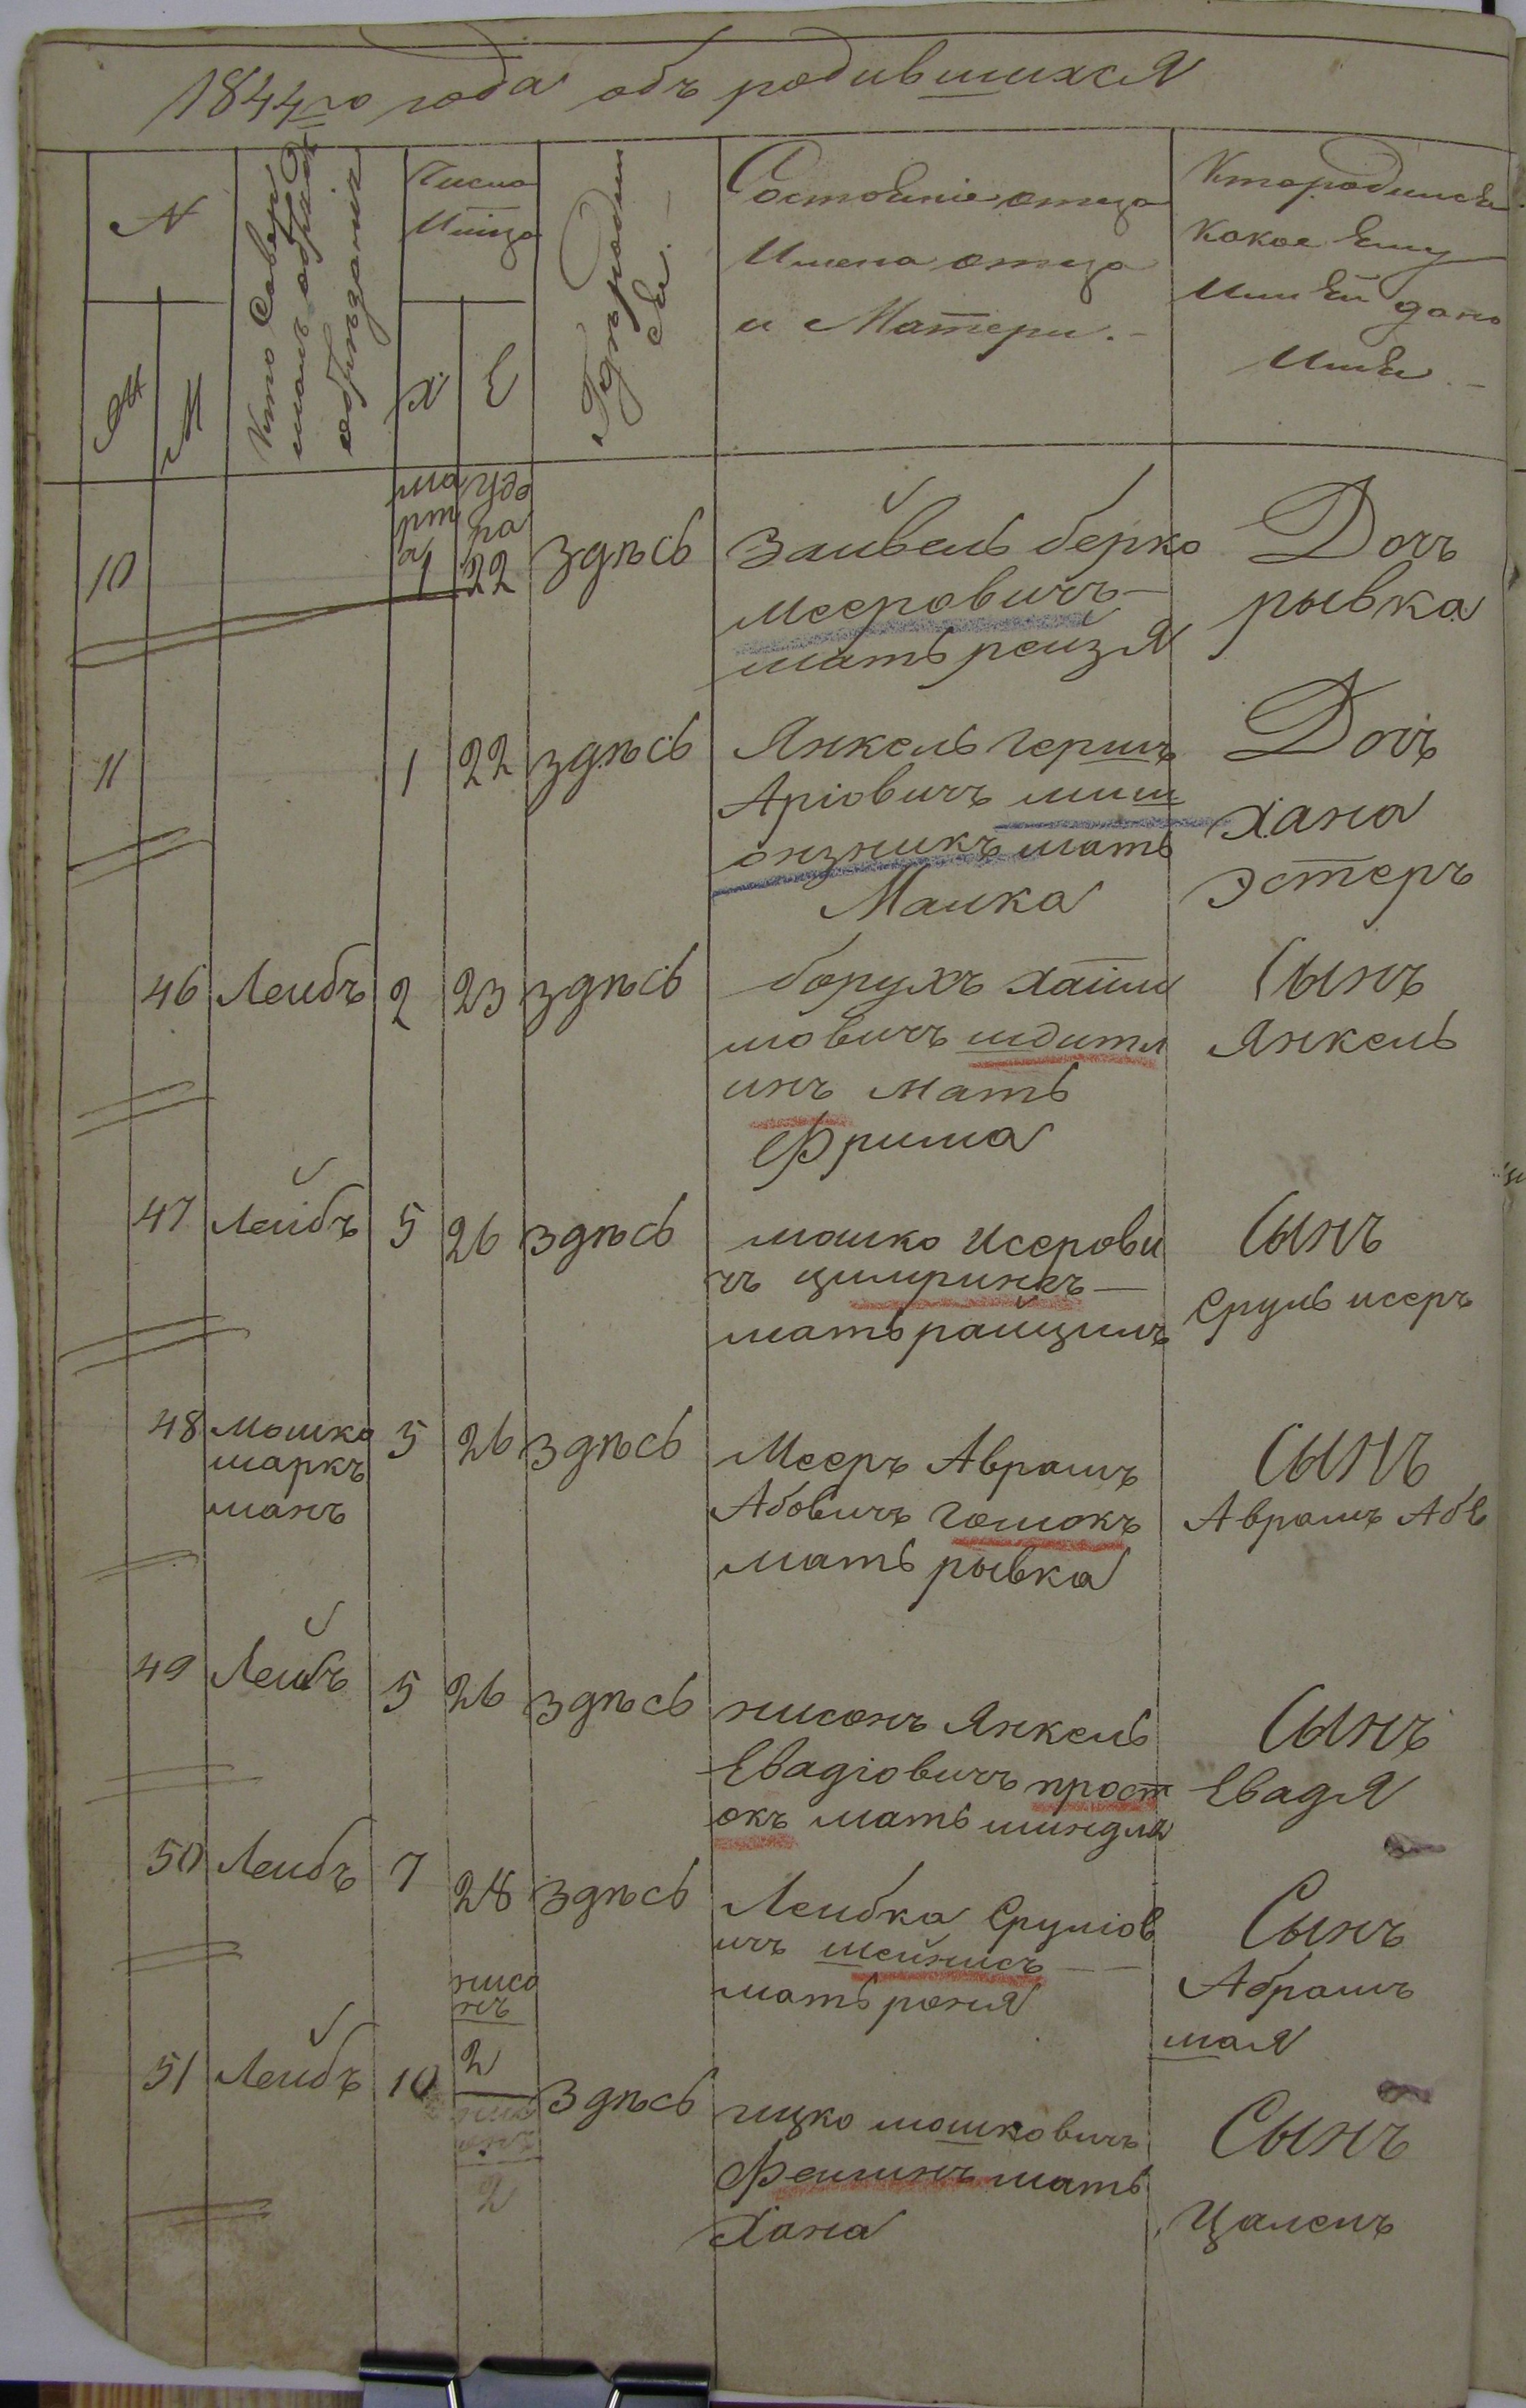 1844го года объ родившихся
N
Ж
М
Кто Совер
шалъ обрядъ
обрѣзанія
Число
Мѣсяца
Х
Е
Гдѣ родил
ся.
Состояніе отца
Имена отца
и Матери.-
Кто родился
какое Ему
или Ей дано
Имя.-
ма
рта
адо
ра
10
1
22
здѣсь
Зайвель берко
мееровичъ-
мать рейзя
Дочь
рывка
11
1
22
здѣсь
Янкель гершъ
Аріовичъ мил
онзникъ мать
Малка
Дочь
хана
эстеръ
46
Леибъ
2
23
здѣсь
борухъ хаим
мовичъ шдитл
инъ мать
Фрима
Сынъ
Янкель
47
Лейбъ
5
26
здѣсь
мошко Исерови
чъ цимринкъ-
мать райцимъ
Сынъ
Сруль исеръ
48
мошко
шарк
манъ
5
26
здѣсь
Мееръ Аврамъ
Абовичъ гомокъ
мать рывка
Сынъ
Аврамъ Абе
49
Лейбъ
5
26
здѣсь
нисонъ Янкель
Евадіовичъ прост
окъ мать миндля
Сынъ
Евадя
50
Леибъ
7
28
здѣсь
Леибка Сруліов
ичъ шейнисъ--
мать роня
Сынъ
Абрамъ
шая
нисо
нъ
51
Лейбъ
10
2
здѣсь
ицко мошковичъ
Феиминъ мать
Хана
Сынъ
Цалелъ